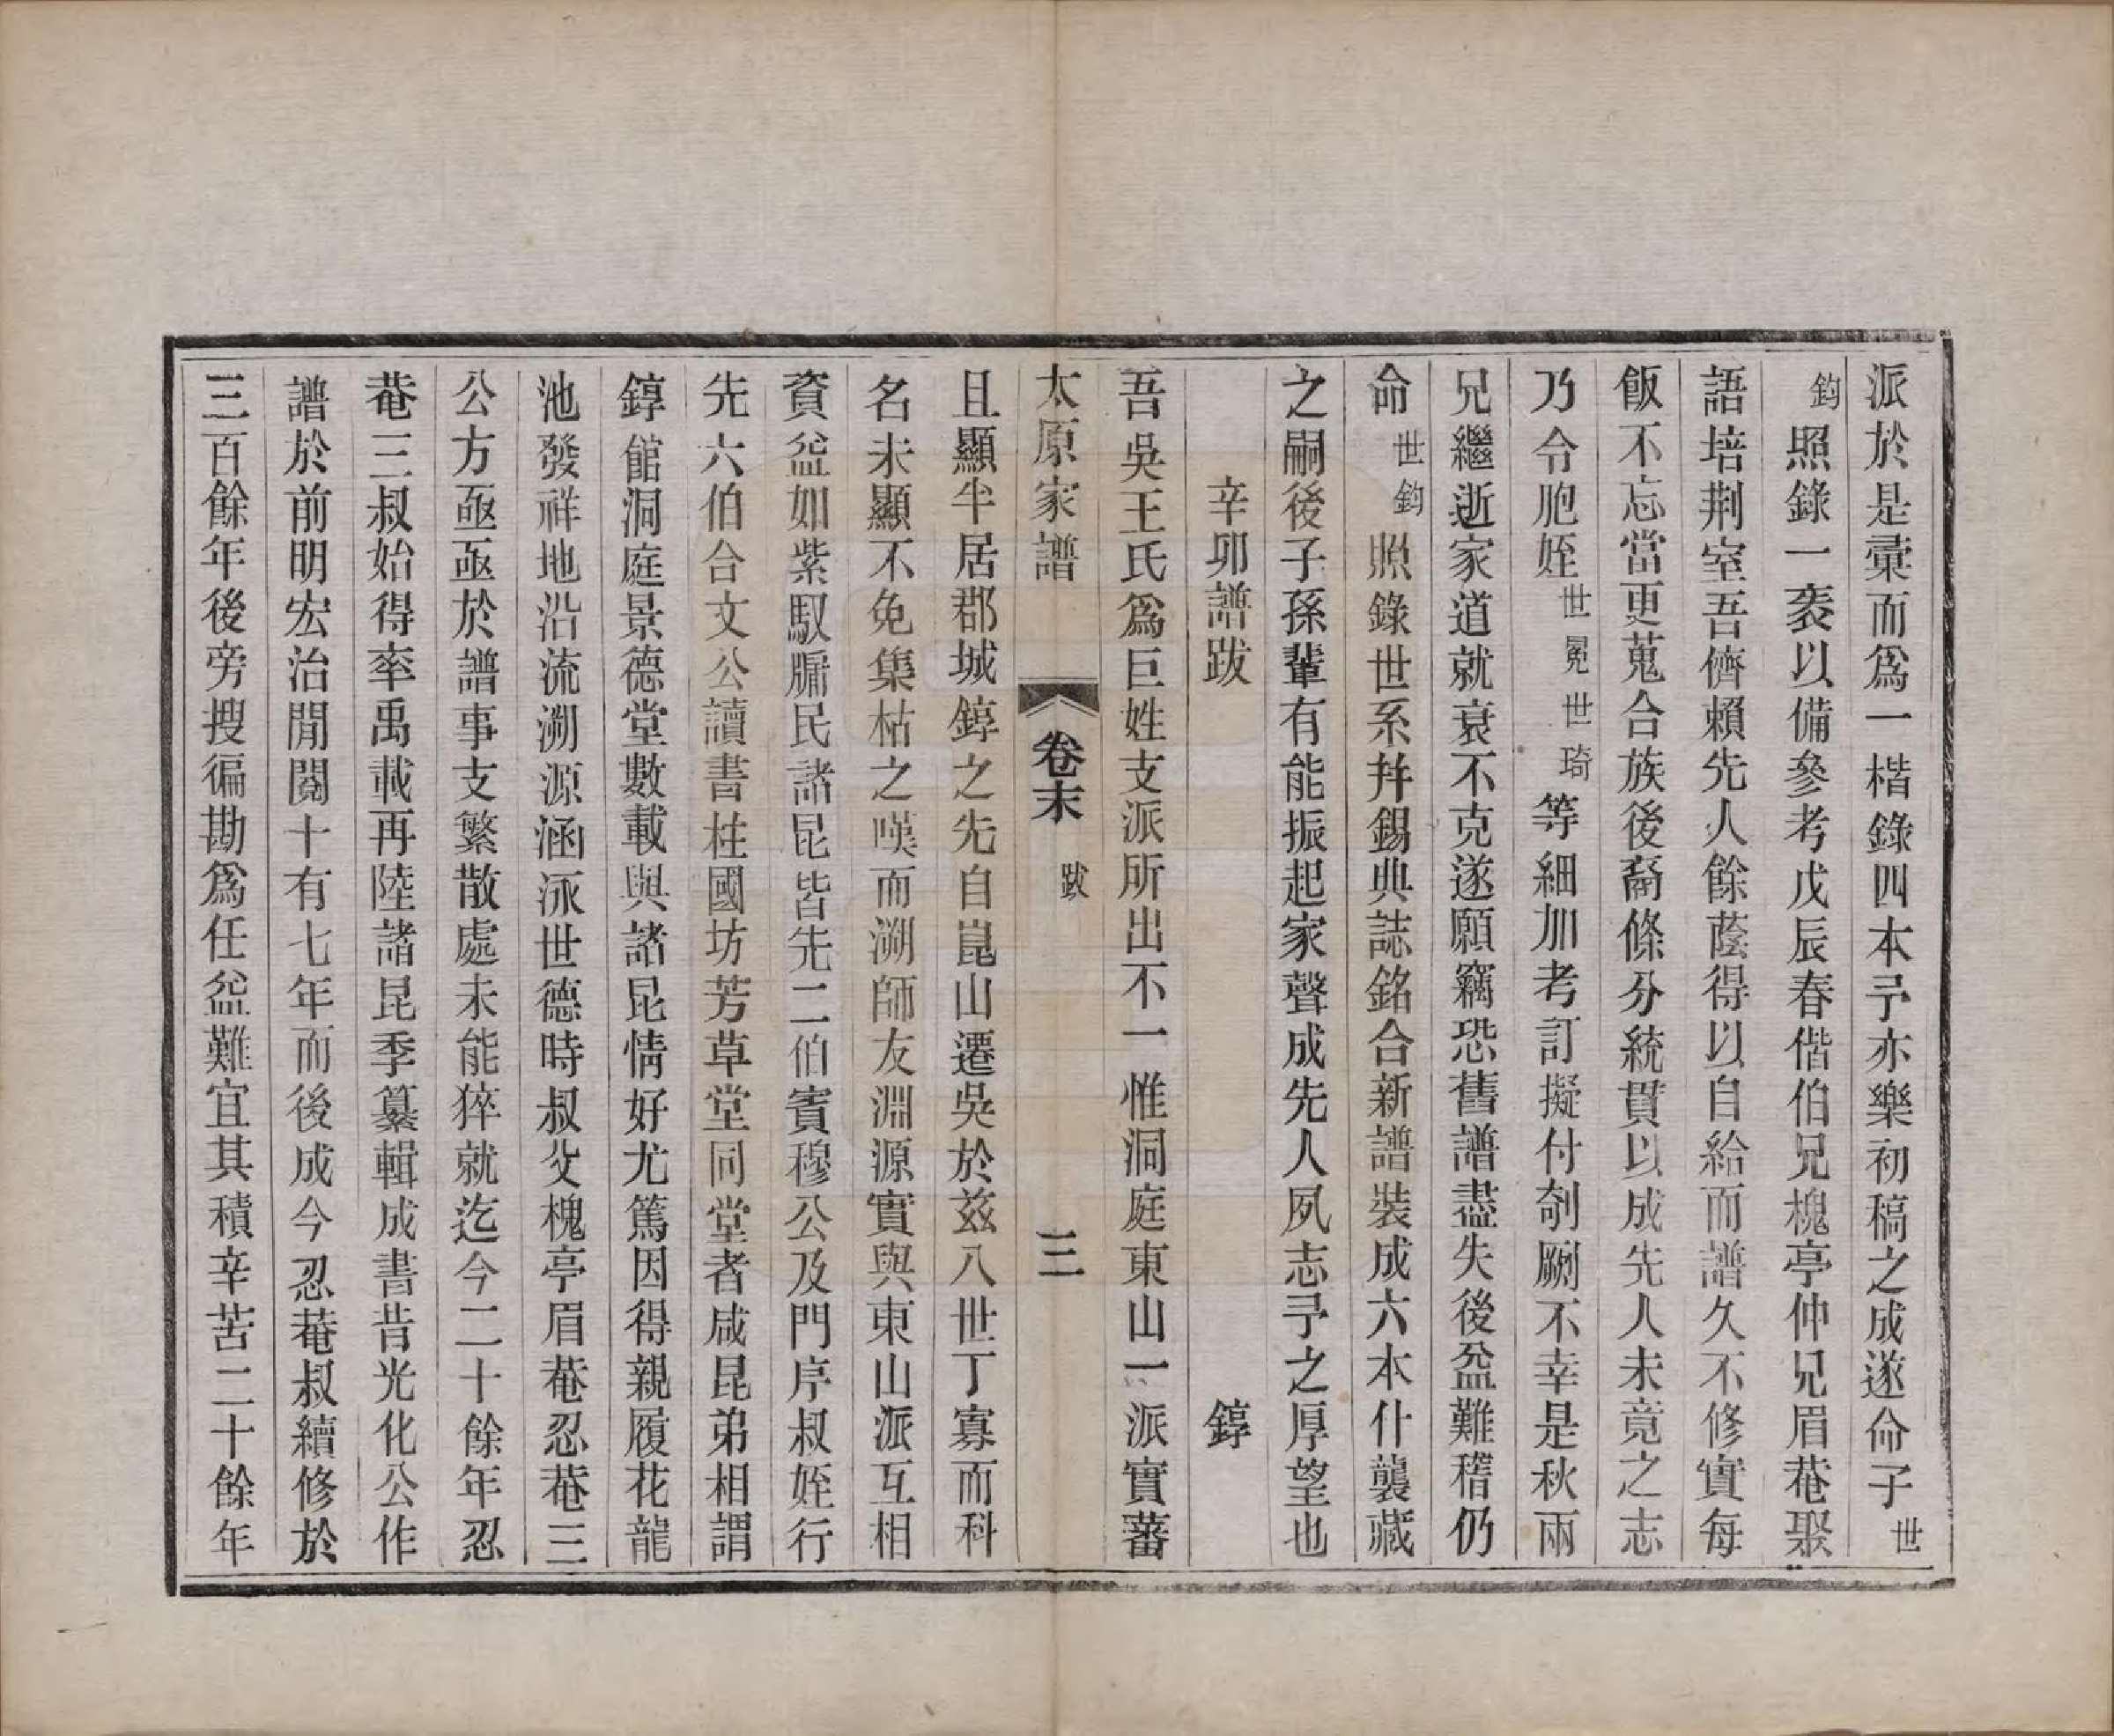 派於是彙而爲一楷錄四本予亦樂初稿之成遂命子世
鈞照錄一袠以備參考戊辰春偕伯兄槐亭仲兄眉菴聚
語培荆室吾儕賴先人餘蔭得以自給而譜久不修實每
飯不忘當更蒐合族後裔條分統貫以成先人未竟之志
乃令胞姪世冕世琦等細加考訂擬付剞劂不幸是秋兩
兄繼逝家道就衰不克遂願竊恐舊譜盡失後益難稽仍
命世鈞照錄世系幷錫典誌銘合新譜裝成六本什襲藏
之嗣後子孫輩有能振起家聲成先人夙志予之厚望也
辛卯譜跋　錞
吾吳王氏爲巨姓支派所出不一惟洞庭東山一派實蕃
太原家譜　卷末　跋　三
且顯半居郡城錞之先自崑山遷吳於兹八世丁寡而科
名未顯不免集枯之嘆而溯師友淵源實與東山派互相
資益如紫馭牖民諸昆皆先二伯賓穆公及門序叔姪行
先六伯合文公讀書柱國坊芳草堂同堂者咸昆弟相謂
錞館洞庭景德堂數載與諸昆情好尤篤因得親履花龍
池發祥地沿流溯源涵泳世德時叔父槐亭眉菴忍菴三
公方亟亟於譜事支繁散處未能猝就迄今二十餘年忍
菴三叔始得率禹載再陸諸昆季纂輯成書昔光化公作
譜於前明宏治閒閱十有七年而後成今忍菴叔續修於
三百餘年後旁搜徧勘爲任益難宜其積辛苦二十餘年